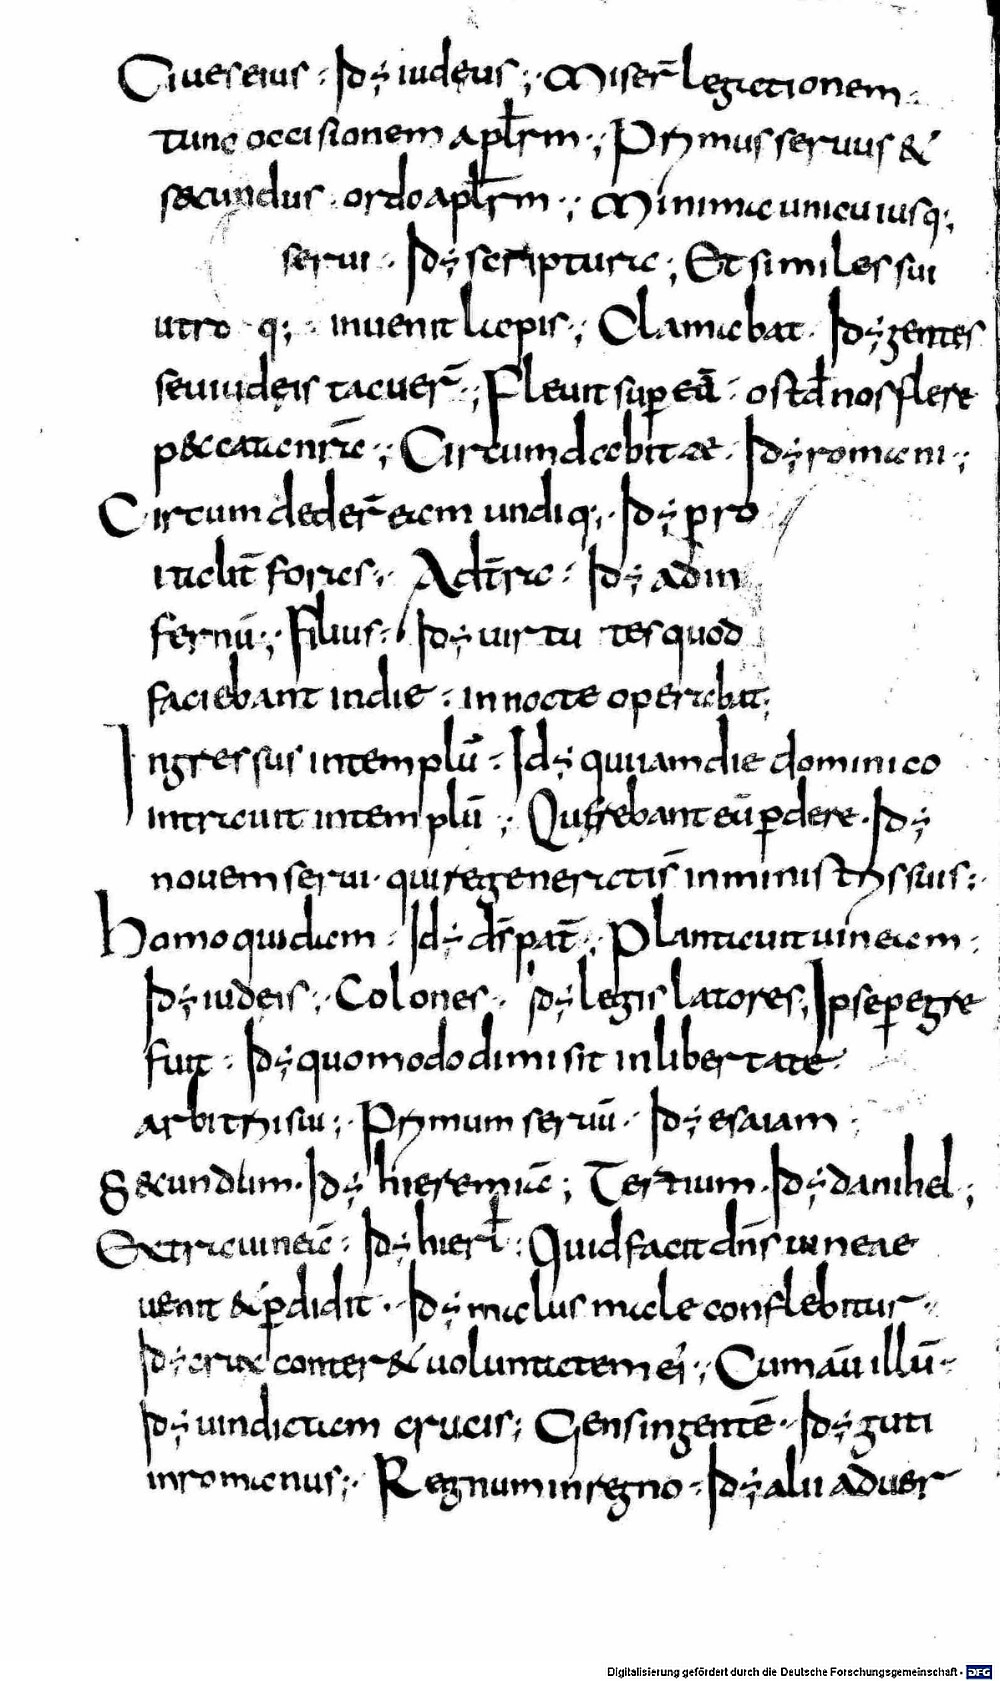 Ciues eius · Id ÷ iudęus ; Miser̄ legationem ·
tunc occisionem aplorm ·; Primus seruus &
secundus · ordo aplorm ·; Mina unicuiusq;
serui · Id ÷ scripturae ; Et similes sui
utro q; · inuenit lapis ·; Clamabat · Id ÷ gentes
seu iudeis tacuer̄ ·; Fleuit sup eū · ostd nos flere
peccata nrā ·; Circumdabit te · Id ÷ romani ·;
Circumdeder̄ eam undiq; · Id ÷ pro
foras ·; Ad · Id ÷ ad in
fernū ·; Filius · Id ÷ uirtu tes quod
faciebant in die · in nocte operabat ;
Ingressus in templū · Id ÷ qui iam die dominico
intrauit in templū ·; Qurebant eū pdere · Id ÷
nouem serui · qui regeneratis in ministris suis ·
Homo quidam · Id ÷ ds pat ·; Plantauit uineam ·
Id ÷ iudeis ·; Colones · Id ÷ legis latores ; Ipse peregre
fuit · Id ÷ quomodo dimisit in libertate
arbitrii sui ·; Primum seruū · Id ÷ esaiam ·
Secundum · Id ÷ hieremiā ; Tertium · Id ÷ danihel ;
Extra uineā · Id ÷ hierl · Quid facit dns uineae
uenit & pdidit · Id ÷ malus male conflebitur ·
Id ÷ crux conter& uoluntatem ei ·; Cum aū illū ·
Id ÷ uindictam crucis ; Gens in gentē · Id ÷ guti
in romanus ·; Regnum in regno · Id ÷ alii aduer
Digitalisierung gefördert durch die Deutsche Forschungsgemeinschaft - DFG